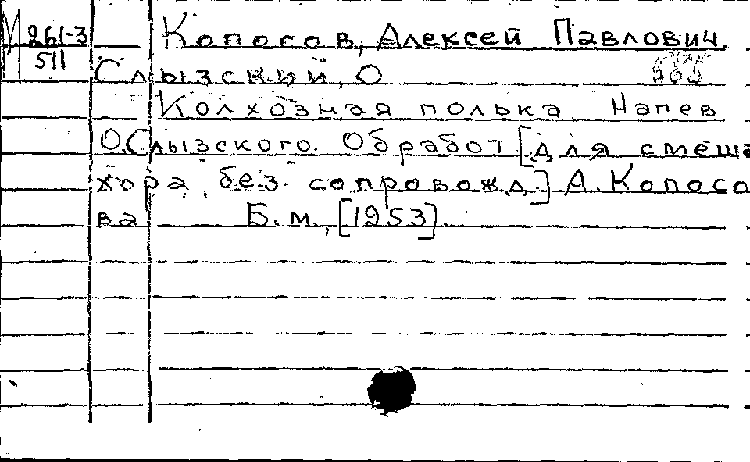 М 261-3
511
Копосов, Алексей Павлович
Слызский, О
Колхозная полька Напев
О.Слызского. Обработ [для смеша
хора без сопровожд.] А. Копосо
ва Б.м., [1953].